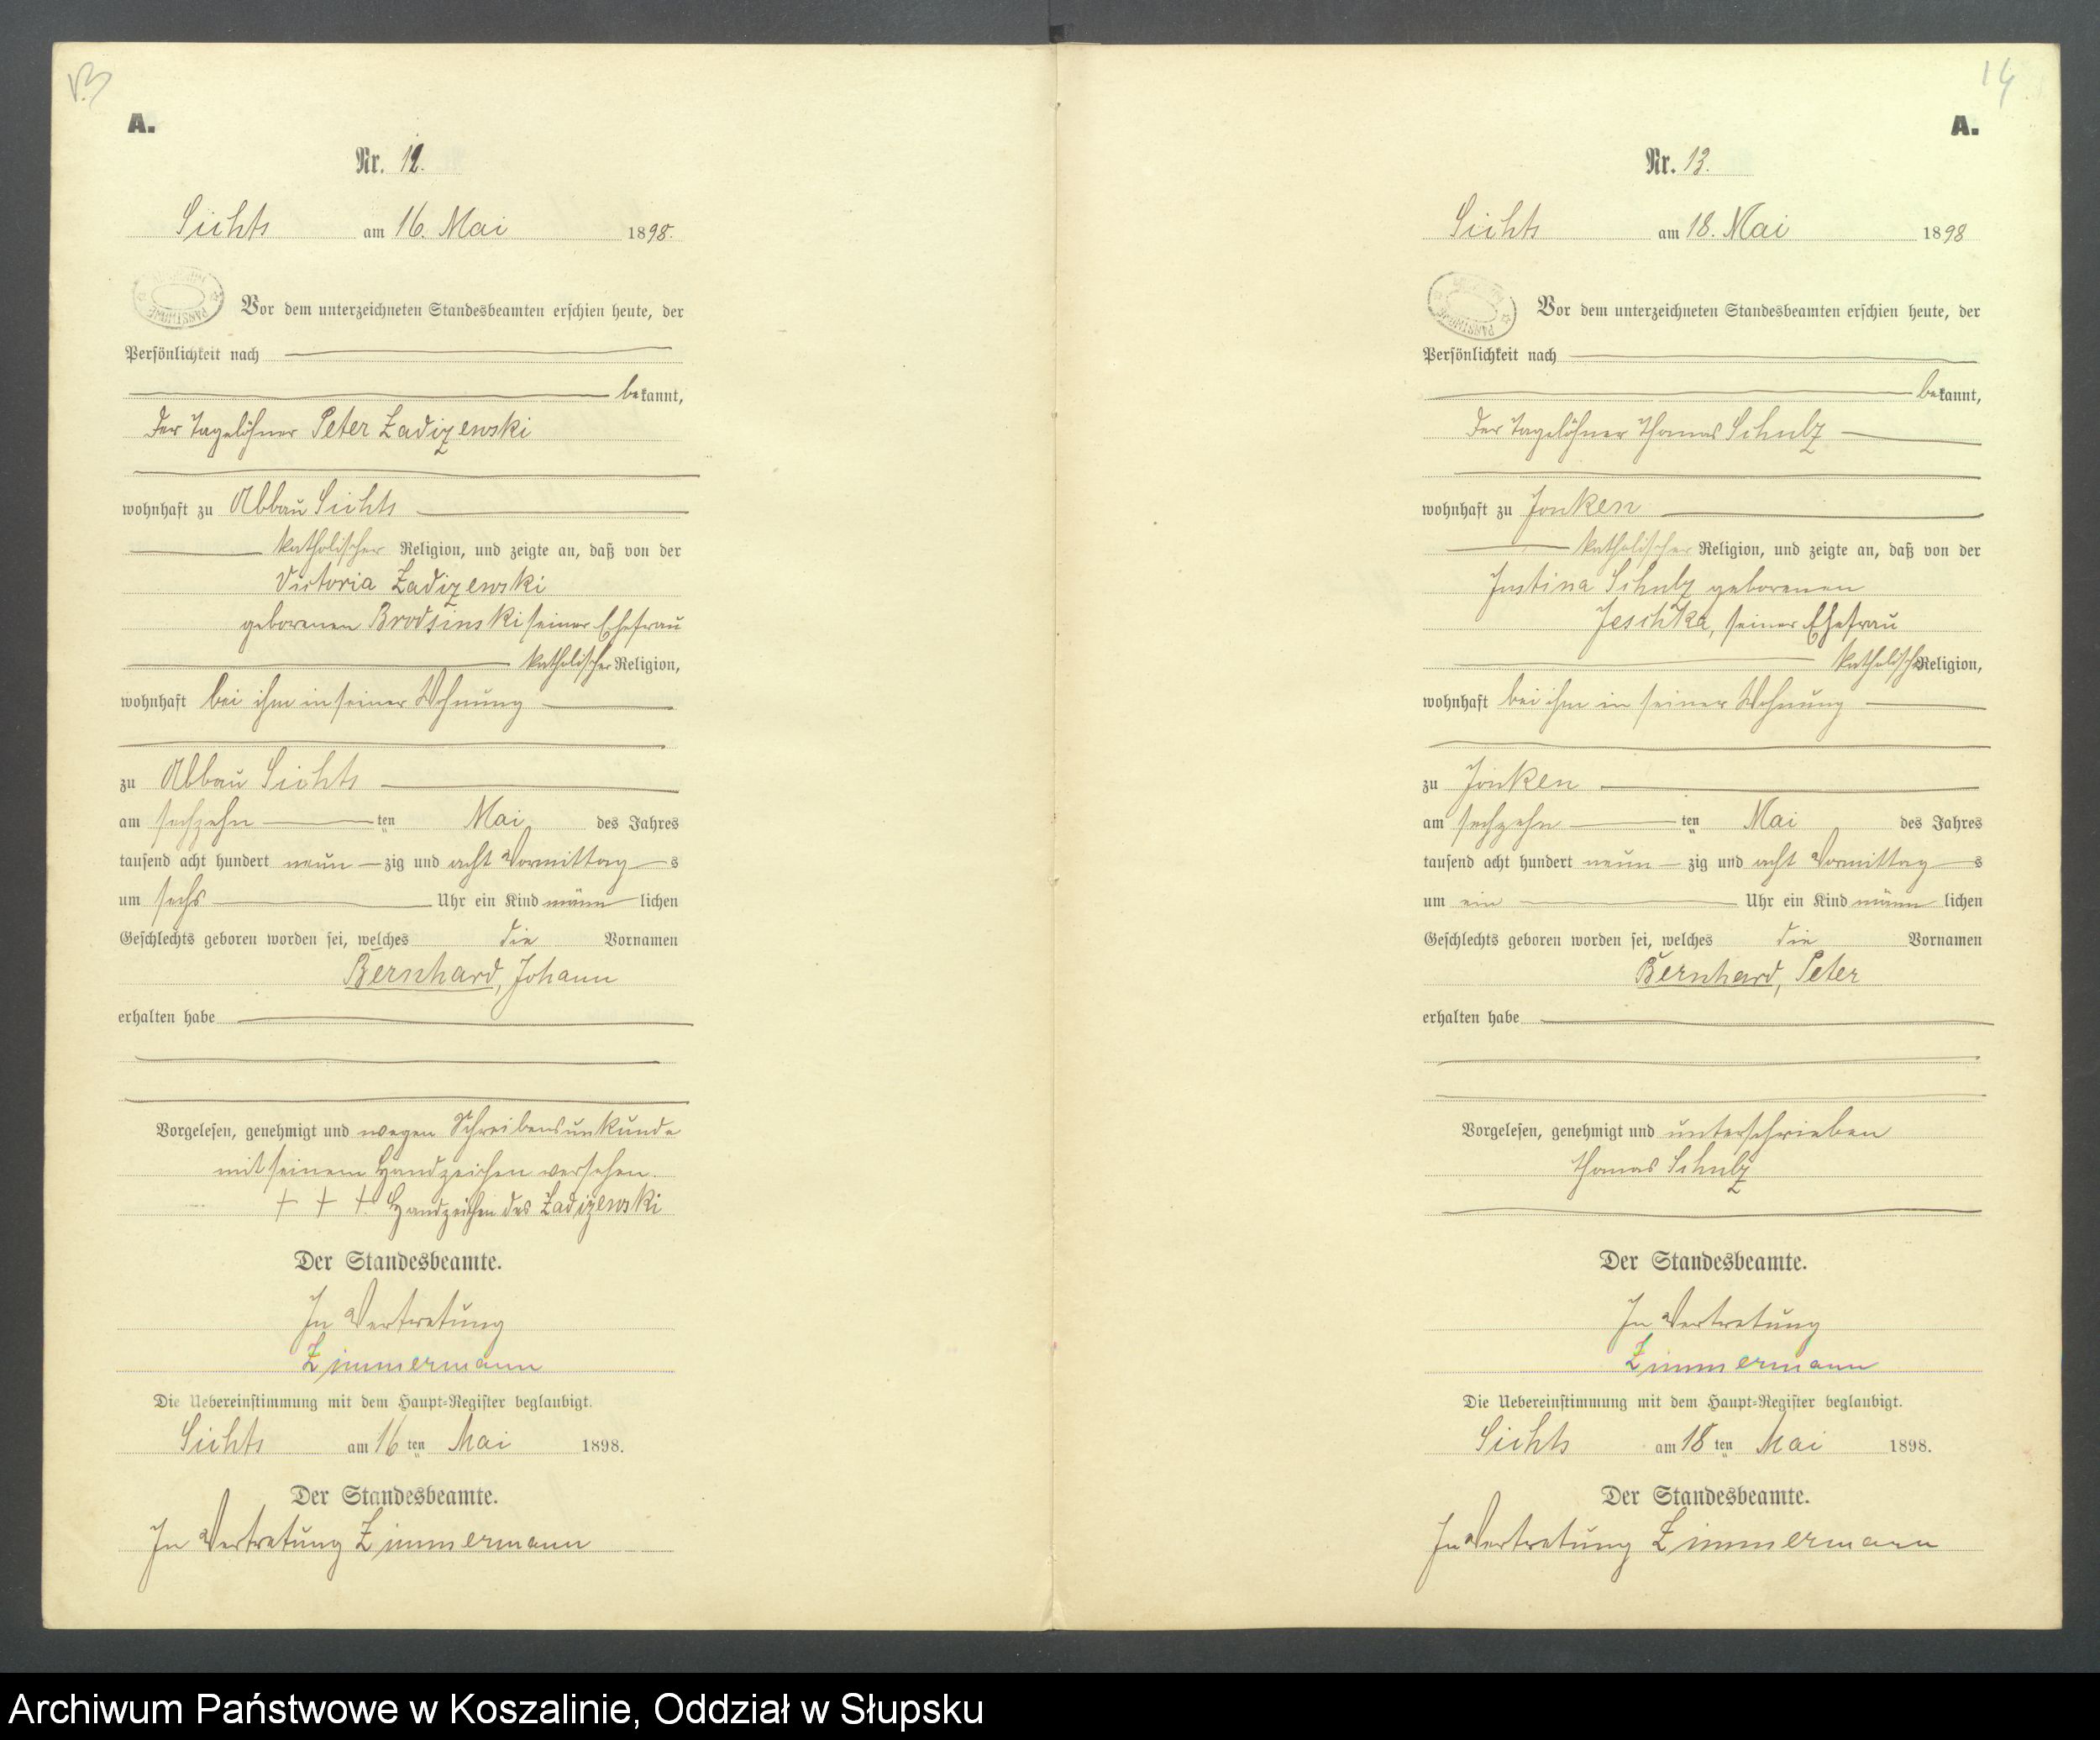 A.
Nr. 12.
Sichts am 16. Mai 1898.
Vor dem unterzeichneten Standesbeamten erschien heute, der
Persönlichkeit nach
bekannt,
der Tagelöhner Peter Ladizewski
wohnhaft zu Abbau Sichts
katholischer Religion, und zeigte an, daß von der
Victoria Ladizewski
geborenen Brodsinski seiner Ehefrau
katholischer Religion,
wohnhaft bei ihm in seiner Wohnung
zu Abbau Sichts
am sechzehn ten Mai des Jahres
tausend acht hundert neun zig und acht Vormittag s
um sechs Uhr ein Kind männ lichen
Geschlechts geboren worden sei, welches die Vornamen
Bernhard, Johann
erhalten habe
Vorgelesen, genehmigt und wegen Schreibensunkunde
mit seinem Handzeichen versehen.
+ + + Handzeichen des Ladizewski
Der Standesbeamte.
In Vertretung
Zimmermann
Die Uebereinstimmung mit dem Haupt-Register beglaubigt.
Sichts am 16 ten Mai 1898.
Der Standesbeamte.
In Vertretung Zimmermann
14
A.
Nr. 13.
Sichts am 18. Mai 1898
Vor dem unterzeichneten Standesbeamten erschien heute, der
Persönlichkeit nach
bekannt,
der Tagelöhner Thomas Schulz
wohnhaft zu Jonken
katholischer Religion, und zeigte an, daß von der
Justina Schulz geborenen
Jeschka, seiner Ehefrau
katholischer Religion,
wohnhaft bei ihm in seiner Wohnung
zu Jonken
am sechzehn ten Mai des Jahres
tausend acht hundert neun zig und acht Vormittag s
um ein Uhr ein Kind männ lichen
Geschlechts geboren worden sei, welches die Vornamen
Bernhard, Peter
erhalten habe
Vorgelesen, genehmigt und unterschrieben
Thomas Schulz
Der Standesbeamte.
In Vertretung
Zimmermann
Die Uebereinstimmung mit dem Haupt-Register beglaubigt.
Sichts am 18 ten Mai 1898.
Der Standesbeamte.
In Vertretung Zimmermann
Archiwum Państwowe w Koszalinie, Oddział w Słupsku